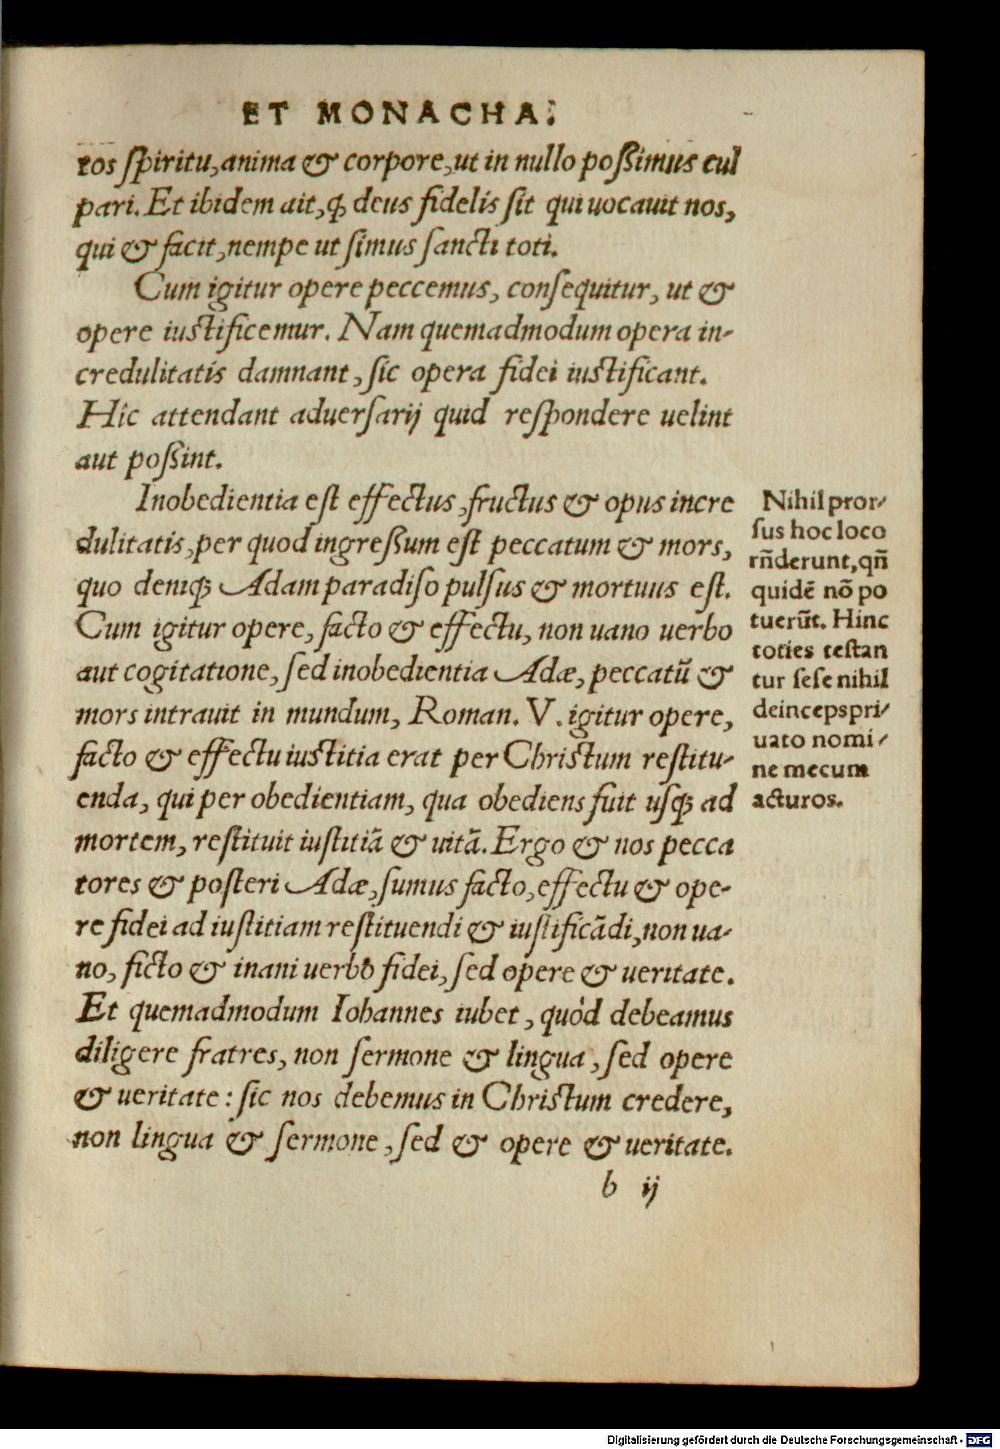 ET MONACHA.
tos spiritu, anima & corpore, ut in nullo poßimus cul
pari. Et ibidem ait, ꝙ deus fidelis sit qui uocauit nos,
qui & facit, nempe ut simus sancti toti.
Cum igitur opere peccemus, consequitur, ut &
opere iustificemur. Nam quemadmodum opera in-
credulitatis damnant, sic opera fidei iustificant.
Hîc attendant aduersarij quid respondere uelint
aut poßint.
Inobedientia est effectus, fructus & opus incre
dulitatis, per quod ingreßum est peccatum & mors,
quo deniqꝫ Adam paradiso pulsus & mortuus est.
Cum igitur opere, facto & effectu, non uano uerbo
aut cogitatione, sed inobedientia Adæ, peccatũ &
mors intrauit in mundum, Roman. V. igitur opere,
facto & effectu iustitia erat per Christum restitu-
enda, qui per obedientiam, qua obediens fuit usqꝫ ad
mortem, restituit iustitiã & uitã. Ergo & nos pecca
tores & posteri Adæ, sumus facto, effectu & ope-
re fidei ad iustitiam restituendi & iustificãdi, non ua-
no, ficto & inani uerbo fidei, sed opere & ueritate.
Et quemadmodum Iohannes iubet, quòd debeamus
diligere fratres, non sermone & lingua, sed opere
& ueritate: sic nos debemus in Christum credere,
non lingua & sermone, sed & opere & ueritate.
b ij
Nihil pror-
sus hoc loco
rñderunt, qñ
quidẽ nõ po
tuerũt. Hinc
toties testan
tur sese nihil
deinceps pri-
uato nomi-
ne mecum
acturos.
Digitalisierung gefördert durch die Deutsche Forschungsgemeinschaft - DFG